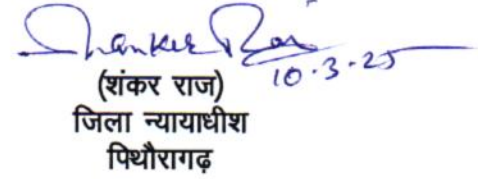 Shanker Raj
10.3.25
(शंकर राज)
जिला न्यायाधीश
पिथौरागढ़